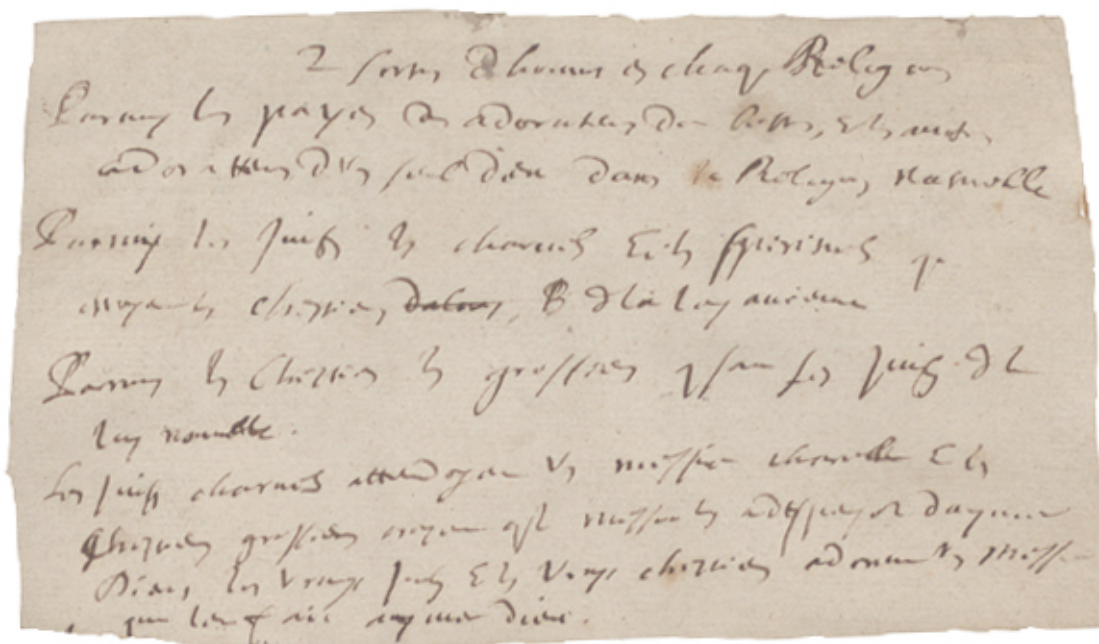 2 sortes dhommes en chaq. Religion
Parmy les payens des adorateurs de bestes, et les autres
adorateurs d'un seul dieu dans la Religion naturelle
Parmy les Juifs les charnels et les spirituels q
estoyent les chrestiens de la loy ancienne
Parmy les Chrestiens les grossiers q sont les Juifs de la
loy nouvelle.
Les Juifs charnels attendoyent un messie charnel et les
Chrestiens grossiers croyent q le messie les a dispensez daymer
Dieu, les vrays Juifs et les vrays chrestiens adorent un messie
qui les fait aymer dieu.